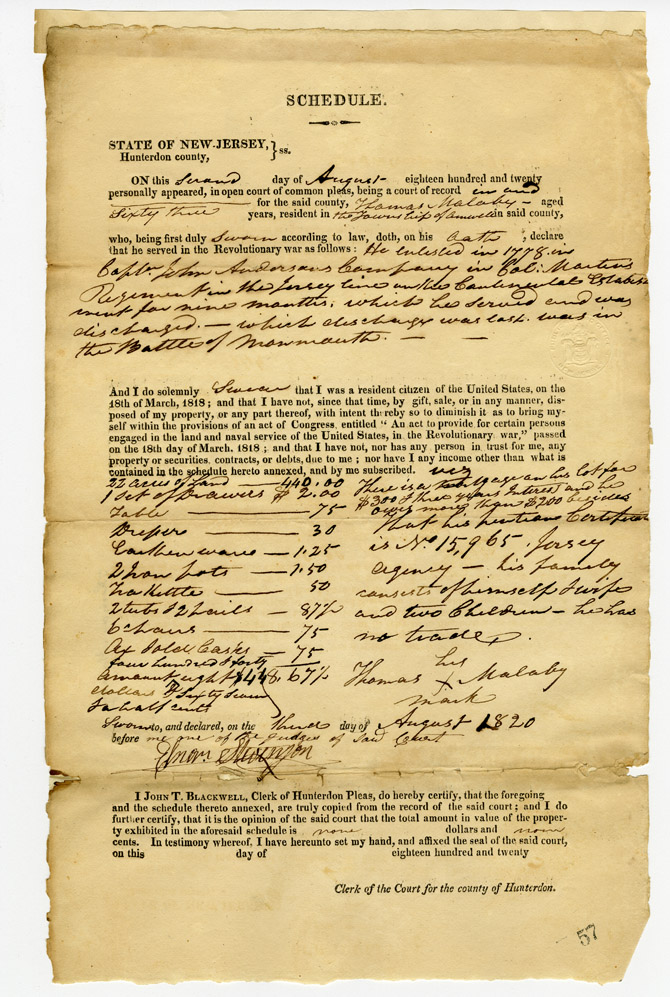 SCHEDULE.
STATE OF NEW-JERSEY, } ss.
Hunterdon county,
ON this Second day of August eighteen hundred and twenty
personally appeared, in open court of common pleas, being a court of record in and
for the said county, Thomas Malaby - aged
Sixty three years, resident in the Township of Amwell in said county,
who, being first duly Sworn according to law, doth, on his oath, declare
that he served in the Revolutionary war as follows: He enlisted in 1778 in
Captn. John Andersons Company in Col: Martins
Regiment in the Jersey line on the Continental Establish
ment for nine months, which he served and was
discharged. — which discharge was lost. was in
the Battle of Monmouth. — —
And I do solemnly Swear that I was a resident citizen of the United States, on the
18th of March, 1818; and that I have not, since that time, by gift, sale, or in any manner, dis-
posed of my property, or any part thereof, with intent thereby so to diminish it as to bring my-
self within the provisions of an act of Congress, entitled "An act to provide for certain persons
engaged in the land and naval service of the United States, in the Revolutionary war," passed
on the 18th day of March, 1818; and that I have not, nor has any person in trust for me, any
property or securities, contracts, or debts, due to me; nor have I any income other than what is
contained in the schedule hereto annexed, and by me subscribed. viz
22 acres of Land — 440.00
1 Set of Drawers $ 2.00
Table — 75
Dresser — 30
Earthen ware — 1.25
2 Iron pots — 1.50
Tea Kettle — 50
2 tubs & 2 pails — 87½
6 chairs — 75
Ax & old Casks — 75
four hundred & forty
amount eight $448.67½
dollars & Sixty Seven
& a half cents
There is a Mortgage on his lot for
$300 & three years Interest and he
owes more than $200 besides
That his pention Certificate
is No. 15,965. Jersey
agency — his family
consists of himself & wife
and two Children — he has
no trade.
his
Thomas X Malaby
mark
Sworn to, and declared, on the third day of August 1820
before me one of the judges of said Court
Stevenson
I JOHN T. BLACKWELL, Clerk of Hunterdon Pleas, do hereby certify, that the foregoing
and the schedule thereto annexed, are truly copied from the record of the said court; and I do
further certify, that it is the opinion of the said court that the total amount in value of the proper-
ty exhibited in the aforesaid schedule is none dollars and none
cents. In testimony whereof, I have hereunto set my hand, and affixed the seal of the said court,
on this day of eighteen hundred and twenty
Clerk of the Court for the county of Hunterdon.
57